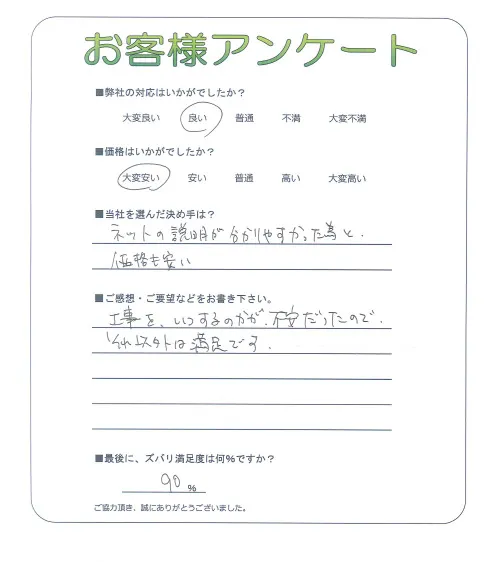 お客様アンケート
■弊社の対応はいかがでしたか？
大変良い 良い 普通 不満 大変不満
■価格はいかがでしたか？
大変安い 安い 普通 高い 大変高い
■当社を選んだ決め手は？
ネットの説明が分かりやすかった為と、
価格も安い
■ご感想・ご要望などをお書き下さい。
工事を、いつするのかが、不安だったので、
それ以外は満足です。
■最後に、ズバリ満足度は何％ですか？
90 %
ご協力頂き、誠にありがとうございました。